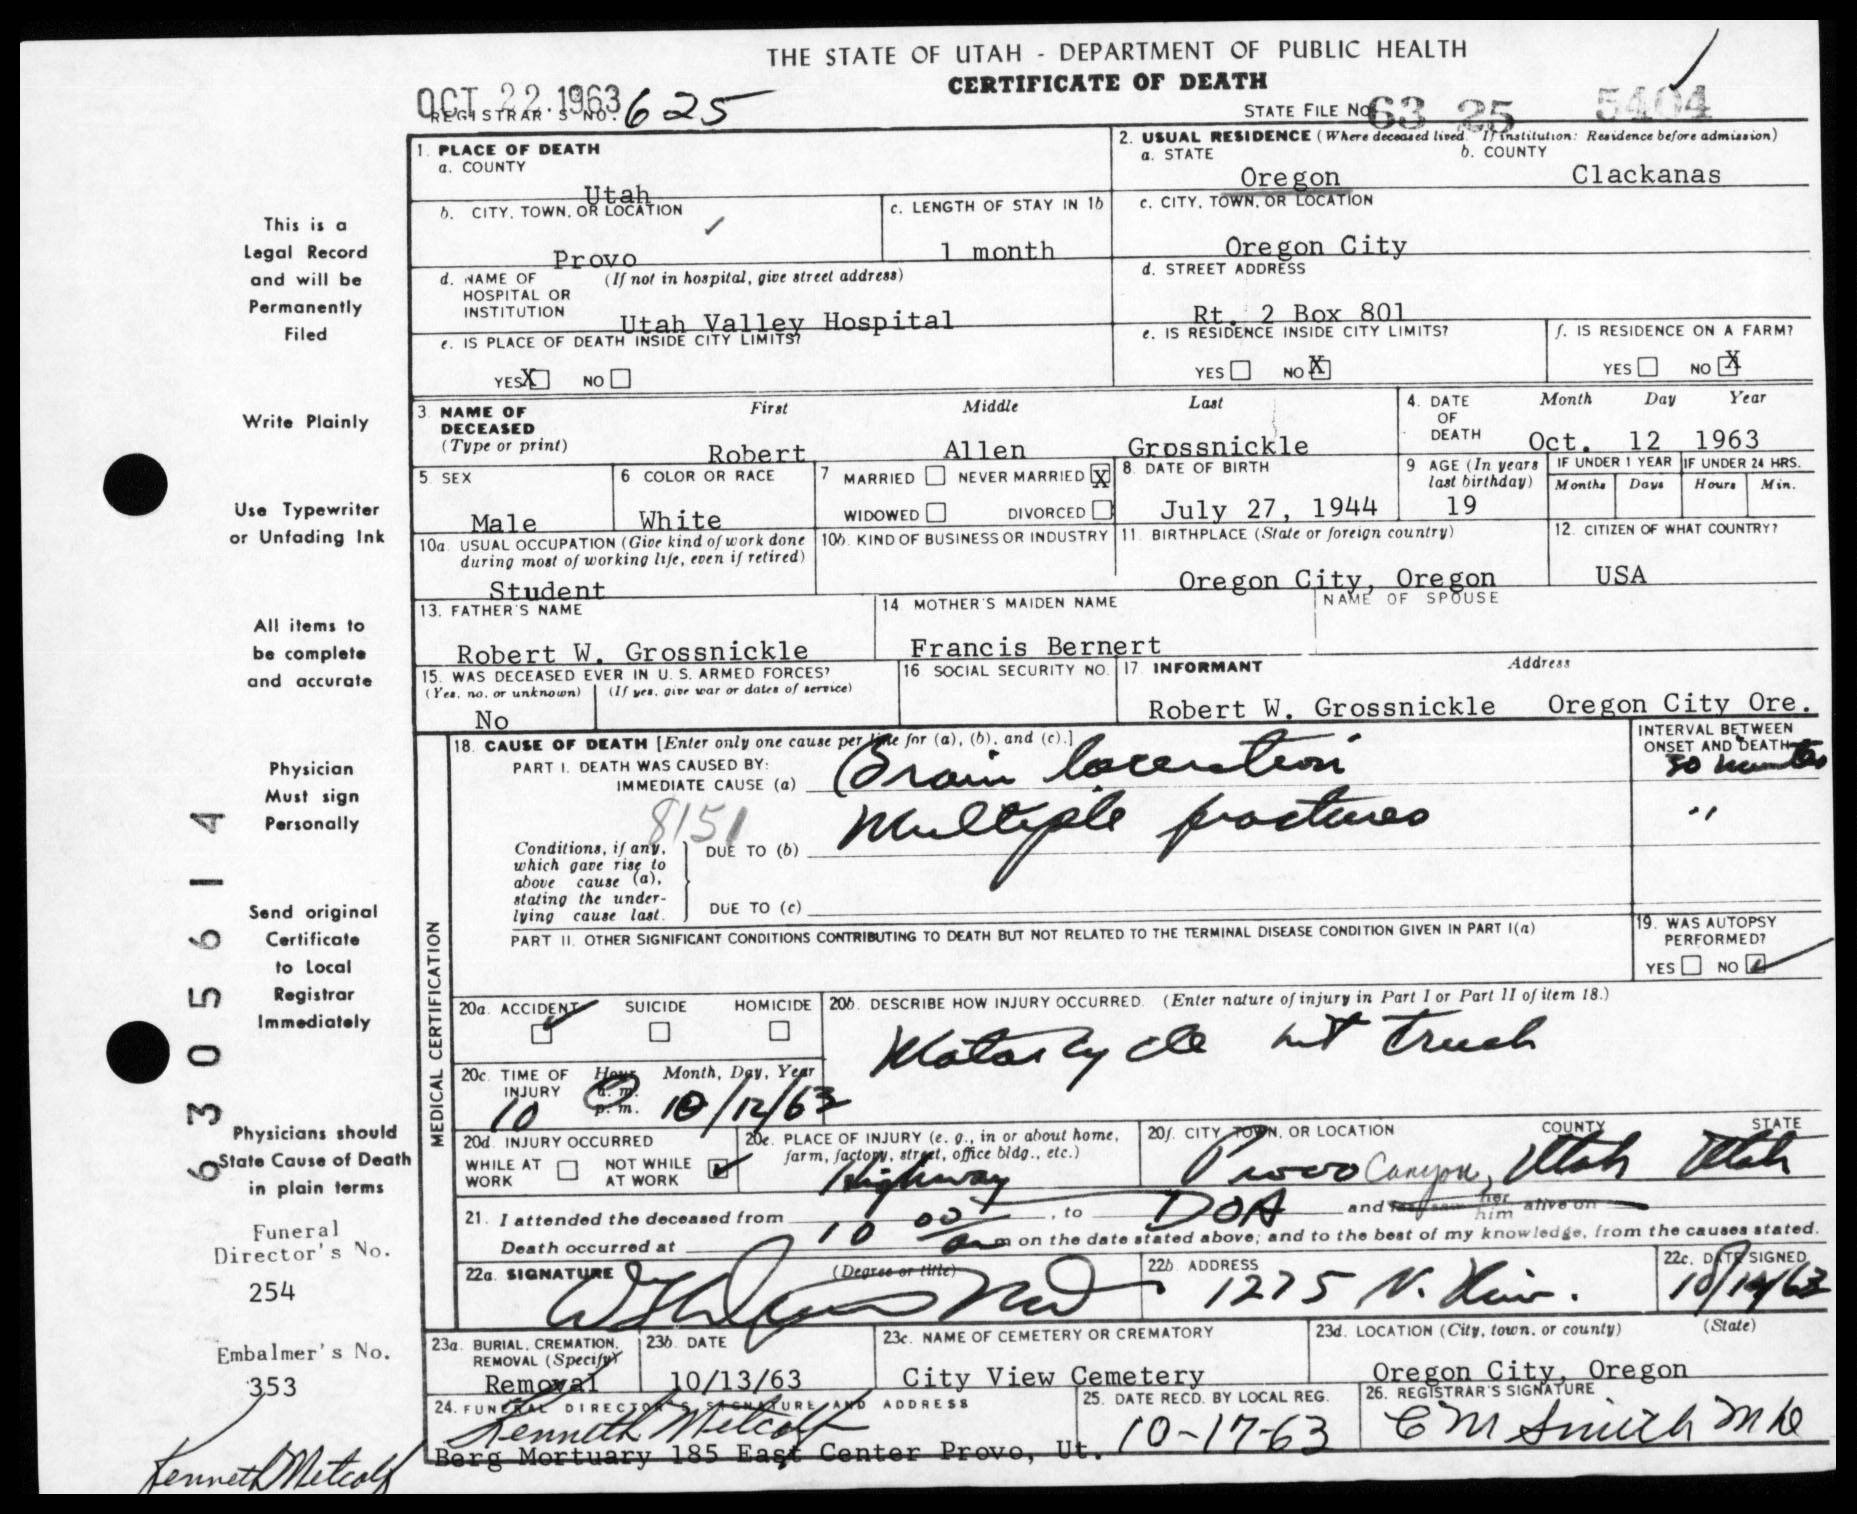 THE STATE OF UTAH - DEPARTMENT OF PUBLIC HEALTH
CERTIFICATE OF DEATH
OCT 22.1963
REGISTRAR'S NO. 625
STATE FILE NO. 63 25 5404
1. PLACE OF DEATH
a. COUNTY
Utah
2. USUAL RESIDENCE (Where deceased lived. If institution: Residence before admission)
a. STATE
Oregon
b. COUNTY
Clackanas
b. CITY, TOWN, OR LOCATION
Provo
c. LENGTH OF STAY IN 1b
1 month
c. CITY, TOWN, OR LOCATION
Oregon City
d. NAME OF HOSPITAL OR INSTITUTION (If not in hospital, give street address)
Utah Valley Hospital
d. STREET ADDRESS
Rt. 2 Box 801
e. IS PLACE OF DEATH INSIDE CITY LIMITS?
YES X NO
e. IS RESIDENCE INSIDE CITY LIMITS?
YES NO X
f. IS RESIDENCE ON A FARM?
YES NO X
3. NAME OF DECEASED (Type or print)
First Middle Last
Robert Allen Grossnickle
4. DATE OF DEATH
Month Day Year
Oct. 12 1963
5. SEX
Male
6 COLOR OR RACE
White
7 MARRIED NEVER MARRIED X
WIDOWED DIVORCED
8. DATE OF BIRTH
July 27, 1944
9 AGE (In years last birthday)
19
IF UNDER 1 YEAR
Months Days
IF UNDER 24 HRS.
Hours Min.
10a. USUAL OCCUPATION (Give kind of work done during most of working life, even if retired)
Student
10b. KIND OF BUSINESS OR INDUSTRY
11. BIRTHPLACE (State or foreign country)
Oregon City, Oregon
12. CITIZEN OF WHAT COUNTRY?
USA
13. FATHER'S NAME
Robert W. Grossnickle
14 MOTHER'S MAIDEN NAME
Francis Bernert
NAME OF SPOUSE
15. WAS DECEASED EVER IN U.S. ARMED FORCES?
(Yes, no, or unknown) (If yes, give war or dates of service)
No
16 SOCIAL SECURITY NO.
17. INFORMANT Address
Robert W. Grossnickle Oregon City Ore.
MEDICAL CERTIFICATION
18. CAUSE OF DEATH [Enter only one cause per line for (a), (b), and (c).]
PART I. DEATH WAS CAUSED BY:
IMMEDIATE CAUSE (a) Brain laceration
INTERVAL BETWEEN ONSET AND DEATH
30 minutes
8151
Conditions, if any, which gave rise to above cause (a), stating the underlying cause last.
DUE TO (b) Multiple fractures "
DUE TO (c)
PART II. OTHER SIGNIFICANT CONDITIONS CONTRIBUTING TO DEATH BUT NOT RELATED TO THE TERMINAL DISEASE CONDITION GIVEN IN PART I(a)
19. WAS AUTOPSY PERFORMED?
YES NO
20a. ACCIDENT SUICIDE HOMICIDE
20b. DESCRIBE HOW INJURY OCCURRED. (Enter nature of injury in Part I or Part II of item 18.)
Motorcycle hit truck
20c. TIME OF INJURY Hour Month, Day, Year
10 a.m. p.m. 10/12/63
20d. INJURY OCCURRED
WHILE AT WORK NOT WHILE AT WORK
20e. PLACE OF INJURY (e. g., in or about home, farm, factory, street, office bldg., etc.)
Highway
20f. CITY, TOWN, OR LOCATION COUNTY STATE
Provo Canyon, Utah Utah
21. I attended the deceased from , to DOA and last saw her him alive on
Death occurred at 10 00 a m on the date stated above; and to the best of my knowledge, from the causes stated.
22a. SIGNATURE (Degree or title)
22b. ADDRESS
1275 N. Univ.
22c. DATE SIGNED
10/14/63
23a. BURIAL, CREMATION, REMOVAL (Specify)
Removal
23b. DATE
10/13/63
23c. NAME OF CEMETERY OR CREMATORY
City View Cemetery
23d. LOCATION (City, town, or county) (State)
Oregon City, Oregon
24. FUNERAL DIRECTOR'S SIGNATURE AND ADDRESS
Kenneth Metcalf
Berg Mortuary 185 East Center Provo, Ut.
25. DATE RECD. BY LOCAL REG.
10-17-63
26. REGISTRAR'S SIGNATURE
C M Smith MD
This is a
Legal Record
and will be
Permanently
Filed
Write Plainly
Use Typewriter
or Unfading Ink
All items to
be complete
and accurate
Physician
Must sign
Personally
Send original
Certificate
to Local
Registrar
Immediately
Physicians should
State Cause of Death
in plain terms
Funeral
Director's No.
254
Embalmer's No.
353
Kenneth Metcalf
6305614